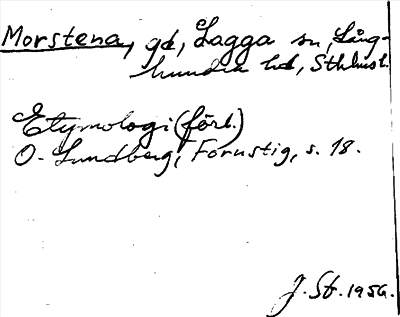 Morstena, gd, Lagga sn, Lång-
hundra hd, Sthlmsl.
Etymologi (förl.)
O. Lundberg, Fornstig, s. 18.
J. St. 1956.